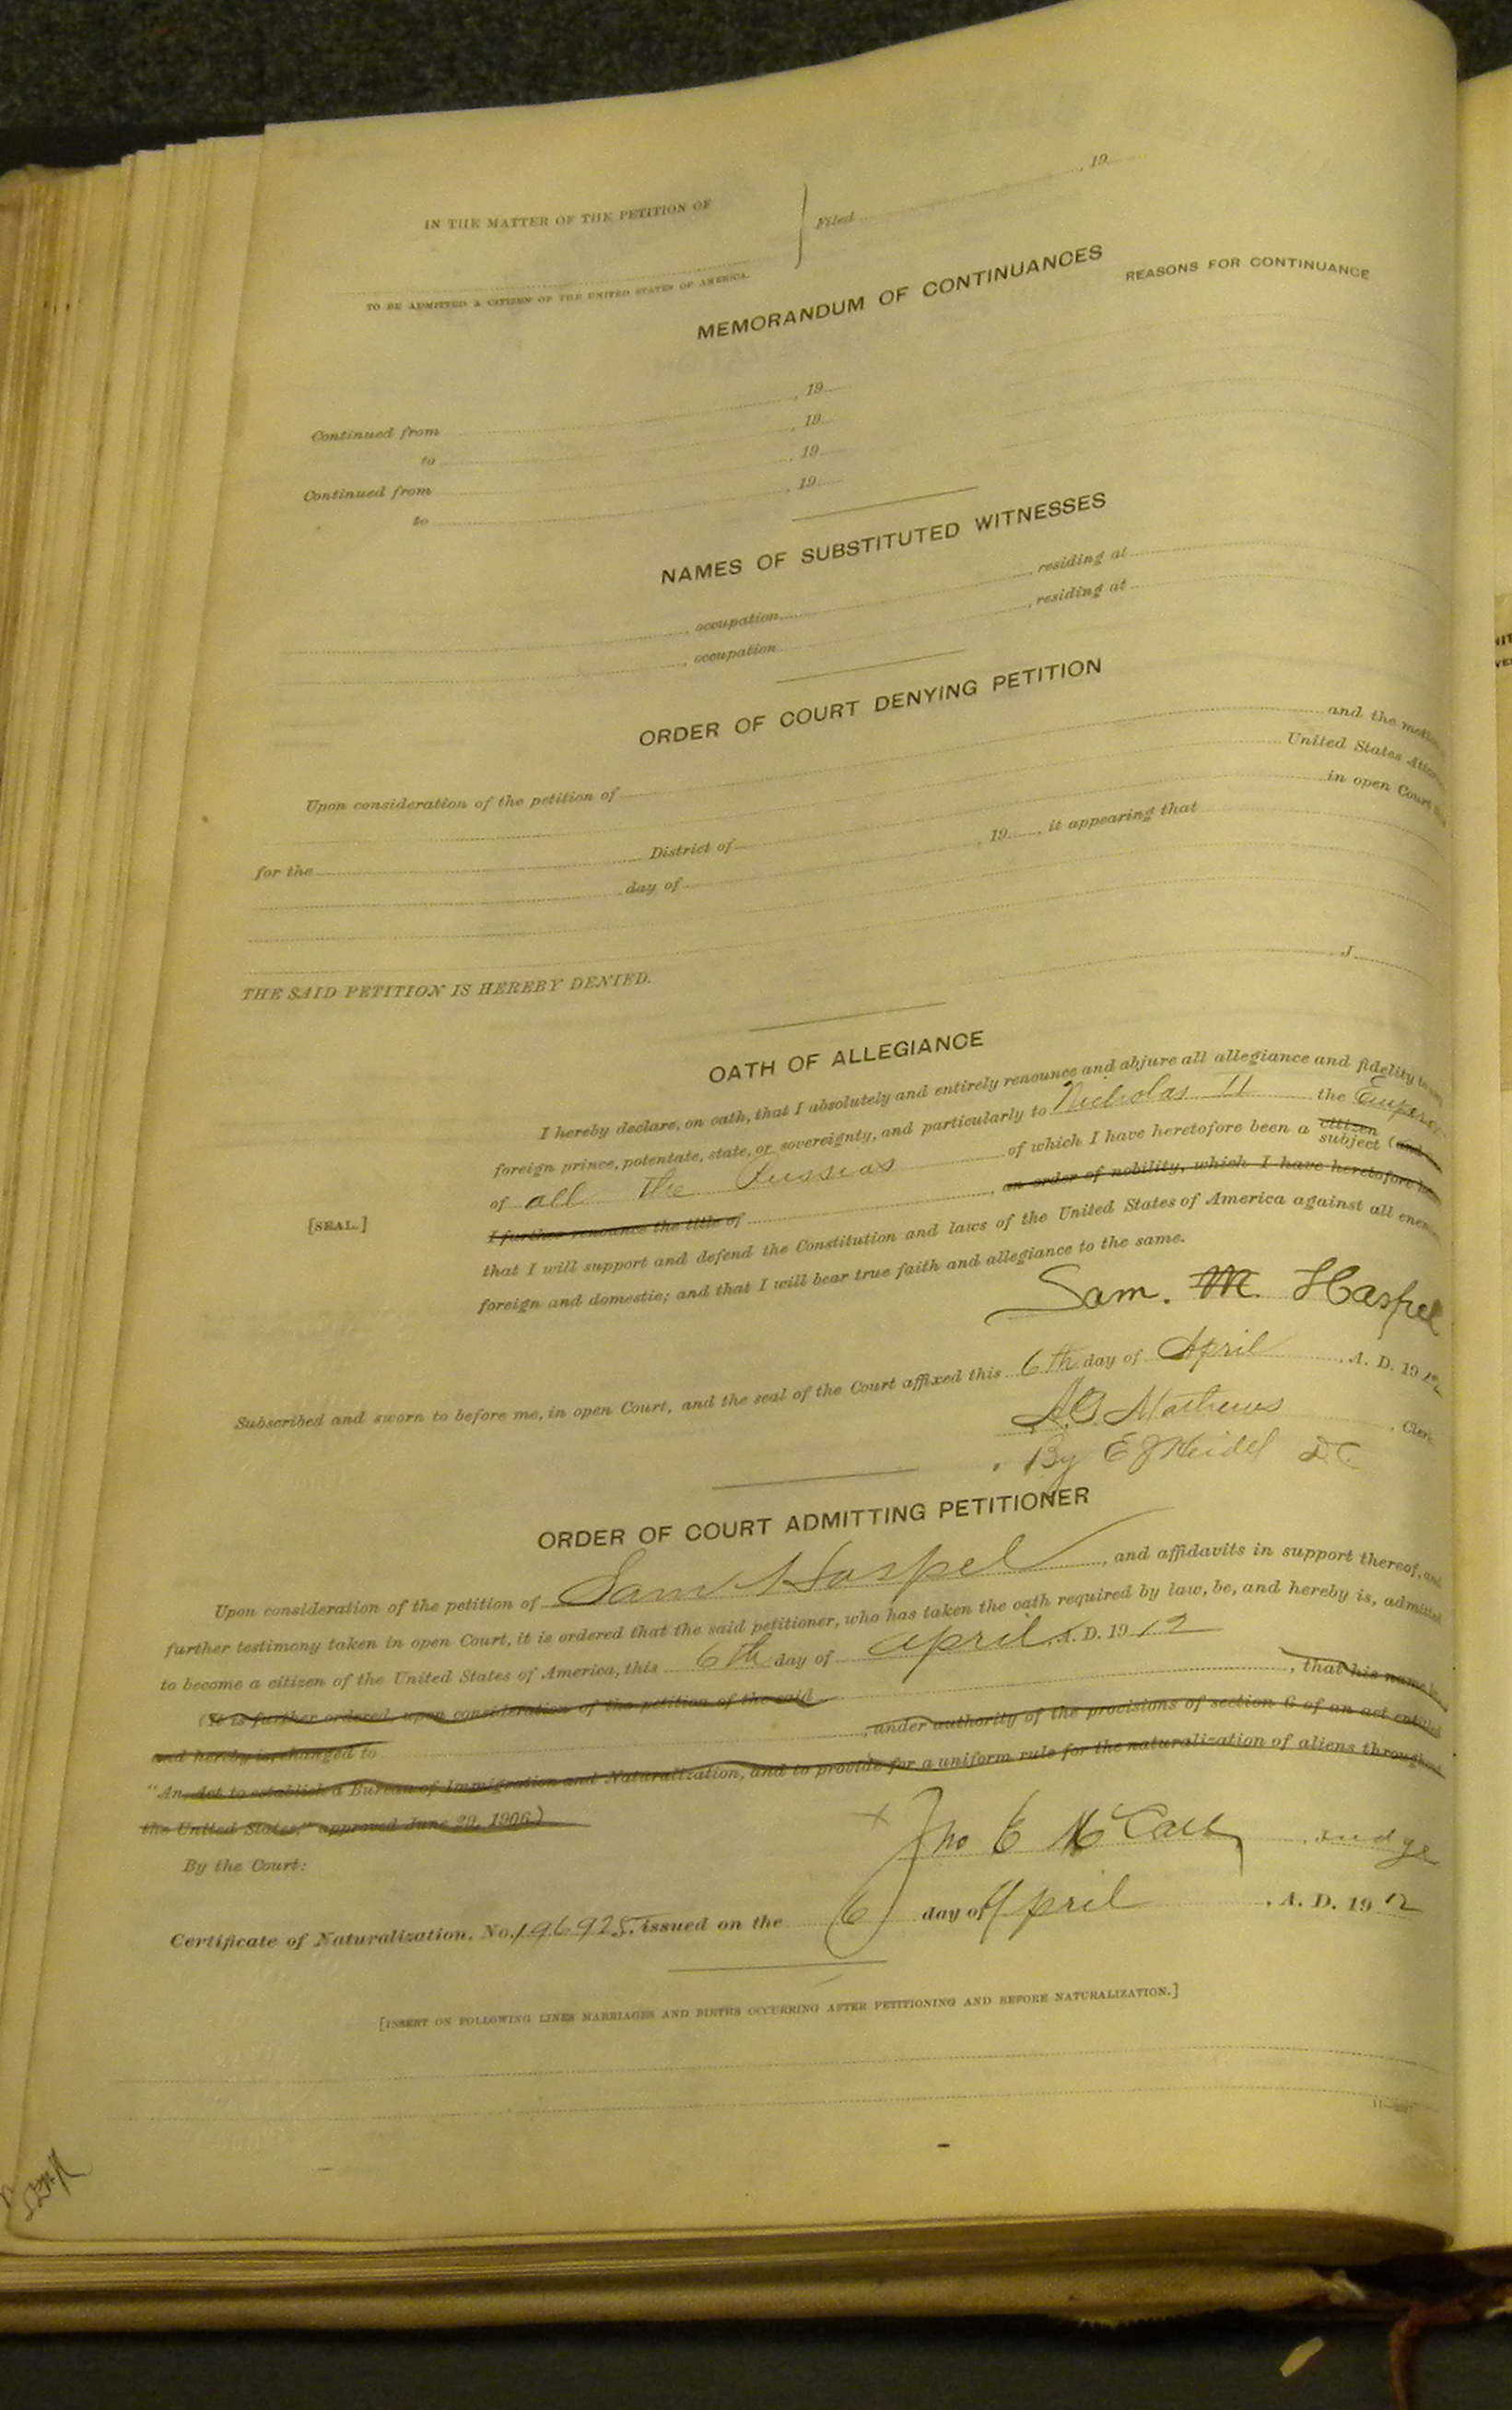 IN THE MATTER OF THE PETITION OF
Filed , 19
TO BE ADMITTED A CITIZEN OF THE UNITED STATES OF AMERICA.
MEMORANDUM OF CONTINUANCES
REASONS FOR CONTINUANCE
Continued from , 19
to , 19
Continued from , 19
to , 19
NAMES OF SUBSTITUTED WITNESSES
, occupation , residing at
, occupation , residing at
ORDER OF COURT DENYING PETITION
Upon consideration of the petition of and the motion
United States Attor
for the District of in open Court
day of , 19 , it appearing that
THE SAID PETITION IS HEREBY DENIED.
, J
OATH OF ALLEGIANCE
I hereby declare, on oath, that I absolutely and entirely renounce and abjure all allegiance and fidelity to
foreign prince, potentate, state, or sovereignty, and particularly to Nicholas II the Emperor
of all the Russias of which I have heretofore been a citizen subject (and
[SEAL.]
I further renounce the title of , an order of nobility, which I have heretofore
that I will support and defend the Constitution and laws of the United States of America against all ene
foreign and domestic; and that I will bear true faith and allegiance to the same.
Sam. M. Haspel
Subscribed and sworn to before me, in open Court, and the seal of the Court affixed this 6th day of April , A. D. 1912
A.G. Mathews , Clerk
By E J Heidel D.C.
ORDER OF COURT ADMITTING PETITIONER
Upon consideration of the petition of Sam Haspel , and affidavits in support thereof, and
further testimony taken in open Court, it is ordered that the said petitioner, who has taken the oath required by law, be, and hereby is, admitted
to become a citizen of the United States of America, this 6th day of april , A. D. 1912
(It is further ordered, upon consideration of the petition of the said , that his name be
and hereby is, changed to , under authority of the provisions of section 6 of an act entitled
"An Act to establish a Bureau of Immigration and Naturalization, and to provide for a uniform rule for the naturalization of aliens throughout
the United States," approved June 29, 1906.)
By the Court:
Jno E McCall , Judge
Certificate of Naturalization, No. 196925, issued on the 6 day of April , A. D. 1912
[INSERT ON FOLLOWING LINES MARRIAGES AND BIRTHS OCCURRING AFTER PETITIONING AND BEFORE NATURALIZATION.]